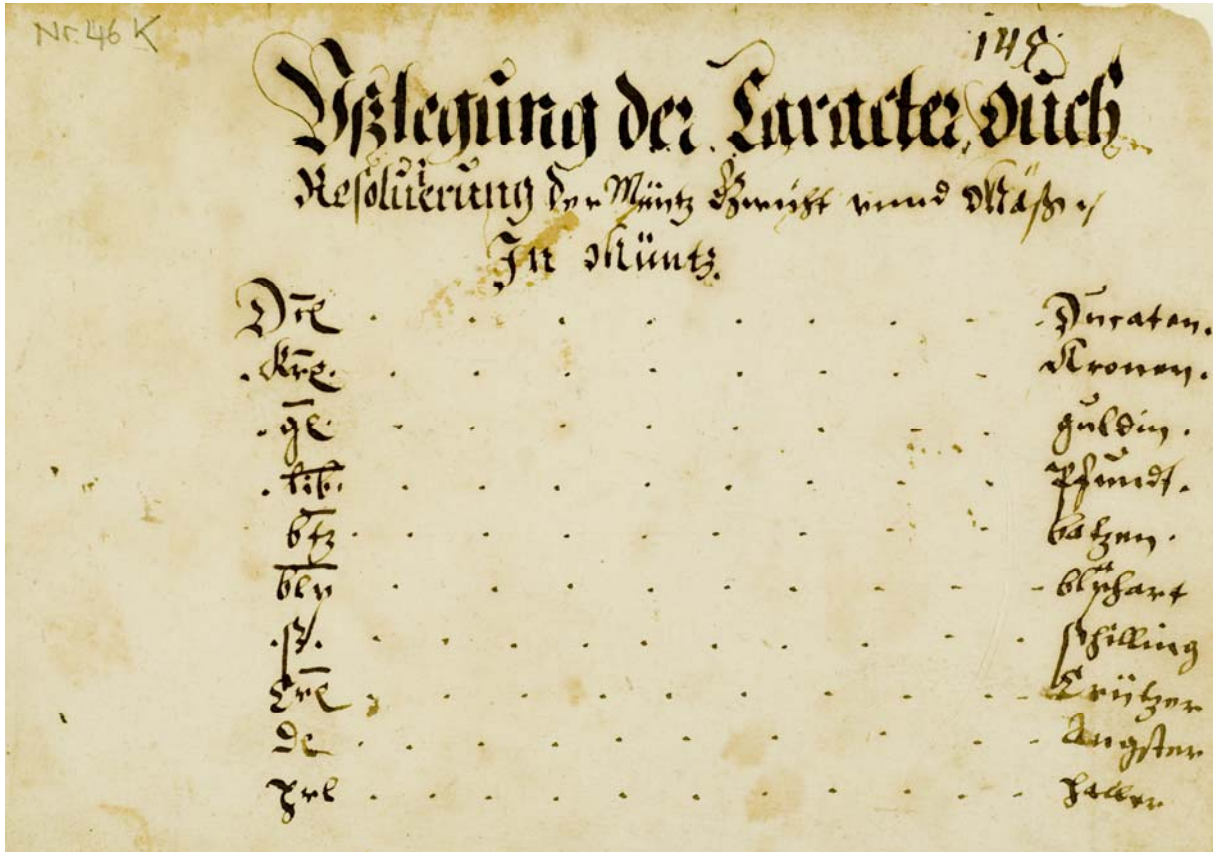 Nr. 46 K
149.
Vßlegung der Caracter, ouch
Resoluierung der Müntz Gewicht vnnd Mäß
In Müntz.
Dcl . . . . . . . . . . Ducaten.
. Krl. . . . . . . . . . Kronen.
. gl. . . . . . . . . . guldin.
. lib. . . . . . . . . . Pfundt.
btz . . . . . . . . . . batzen.
blp . . . . . . . . . . blphart
. ß. . . . . . . . . . . schilling
Crl . . . . . . . . . . Crützer
de . . . . . . . . . . Angster
hrl . . . . . . . . . . haller